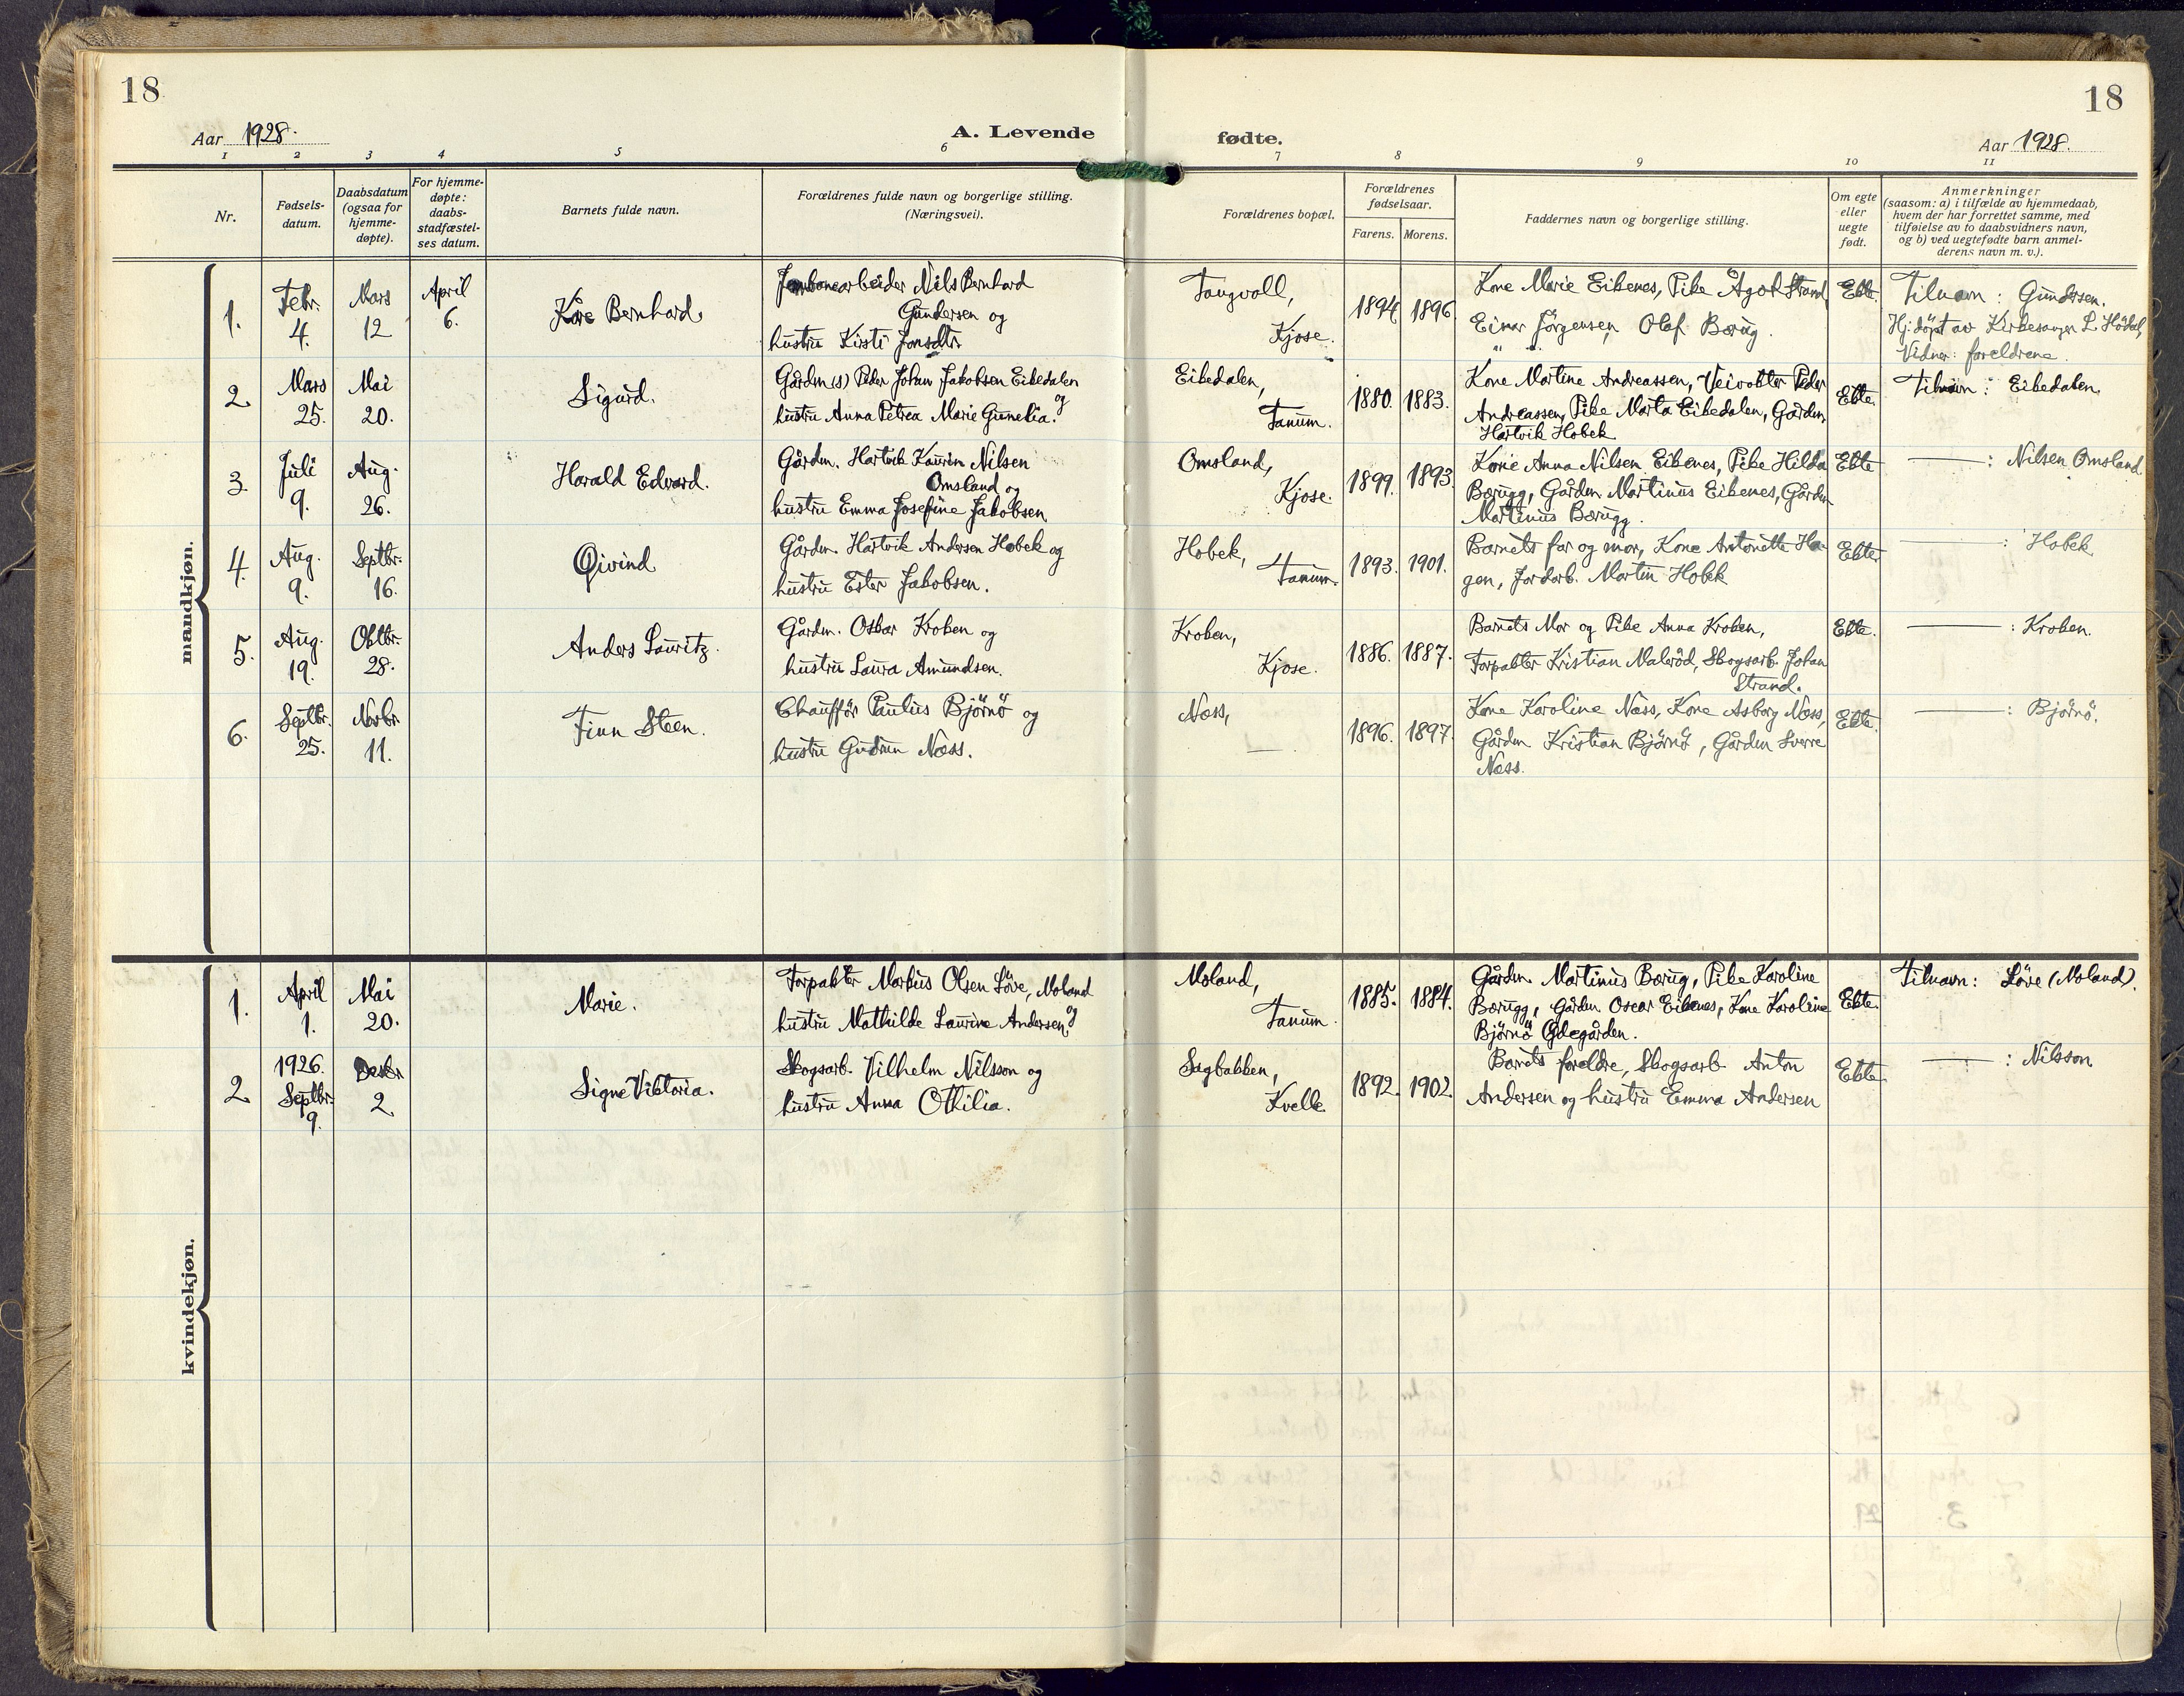 18
Aar 1928.
A. Levende
1 2 3 4 5 6
Nr.
Fødsels-
datum.
Daabsdatum
(ogsaa for
hjemme-
døpte).
For hjemme-
døpte:
daabs-
stadfæstel-
ses datum.
Barnets fulde navn.
Forældrenes fulde navn og borgerlige stilling.
(Næringsvei).
mandkjøn.
1. Febr. 4. Mars 12 April 6. Kåre Bernhard.
Jernbanearbeider Nils Bernhard
Gundersen og
hustru Kirsti Jonsdtr.
2. Mars 25. Mai 20. Sigurd.
Gårdm(s) Peder Johan Jakobsen Eikedalen
og
hustru Anna Petrea Marie Gunelia.
3. Juli 9. Aug. 26. Harald Edvard.
Gårdm. Hartvik Kaurin Nilsen
Omsland og
hustru Emma Josefine Jakobsen
4. Aug. 9. Septbr. 16. Øivind
Gårdm. Hartvik Andersen Hobek og
hustru Ester Jakobsen.
5. Aug. 19. Oktbr. 28. Anders Lauritz.
Gårdm. Oskar Kroken og
hustru Laura Amundsen.
6. Septbr. 25. Novbr. 11. Finn Steen.
Chauffør Paulus Bjørnø og
hustru Gudrun Næss.
kvindekjøn.
1. April 1. Mai 20. Marie.
Forpakter Markus Olsen Löve, Moland
og
hustru Mathilde Laurine Andersen
2. 1926. Septbr. 9. Desbr. 2. Signe Viktoria.
Skogsarb. Vilhelm Nilsson og
hustru Anna Othilia.
18
fødte.
Aar 1928.
7 8 9 10 11
Forældrenes bopæl.
Forældrenes
fødselsaar.
Farens. Morens.
Faddernes navn og borgerlige stilling.
Om egte
eller
uegte
født.
Anmerkninger
(saasom: a) i tilfælde av hjemmedaab,
hvem der har forrettet samme, med
tilføielse av to daabsvidners navn,
og b) ved uegtefødte barn anmel-
derens navn m. v.).
Tangvall,
Kjose.
1894. 1896.
Kone Marie Eikenes, Pike Ågot Strand
Einar Jörgensen, Olaf Bærug.
Ekte.
Tilnavn: Gundersen.
Hj. döpt av Kirkesanger L. Hödal,
Vidner: foreldrene.
Eikedalen,
Tanum.
1880. 1883.
Kone Martine Andreassen, Veivokter Peder
Andreassen, Pike Marta Eikedalen, Gårdm.
Hartvik Hobek
Ekte.
Tilnavn: Eikedalen.
Omsland,
Kjose.
1899. 1893.
Kone Anna Nilsen Eikenes, Pike Hilda
Bærugg, Gårdm. Martinus Eikenes, Gårdm
Martinus Bærugg.
Ekte
——: Nilsen Omsland
Hobek,
Tanum.
1893. 1901.
Barnets far og mor, Kone Antonette Ha-
gen, Jordarb. Martin Hobek
Ekte.
——: Hobek
Kroken,
Kjose.
1886. 1887.
Barnets Mor og Pike Anna Kroken,
Forpakter Kristian Maleröd, Skogsarb. Johan
Strand.
Ekte.
——: Kroken.
Næss,
—
1896. 1897.
Kone Karoline Næss, Kone Asborg Næss,
Gårdm Kristian Bjørnø, Gårdm Sverre
Næss.
Ekte.
——: Bjørnø.
Moland,
Tanum.
1885. 1884.
Gårdm. Martinus Bærug, Pike Karoline
Bærugg, Gårdm. Oscar Eikenes, Kone Karoline
Björnö Ödegården.
Ekte.
Tilnavn: Löve (Moland).
Sagbakken,
Kvelle.
1892. 1902.
Barnets foreldre, Skogsarb. Anton
Andersen og hustru Emma Andersen
Ekte.
——: Nilsson